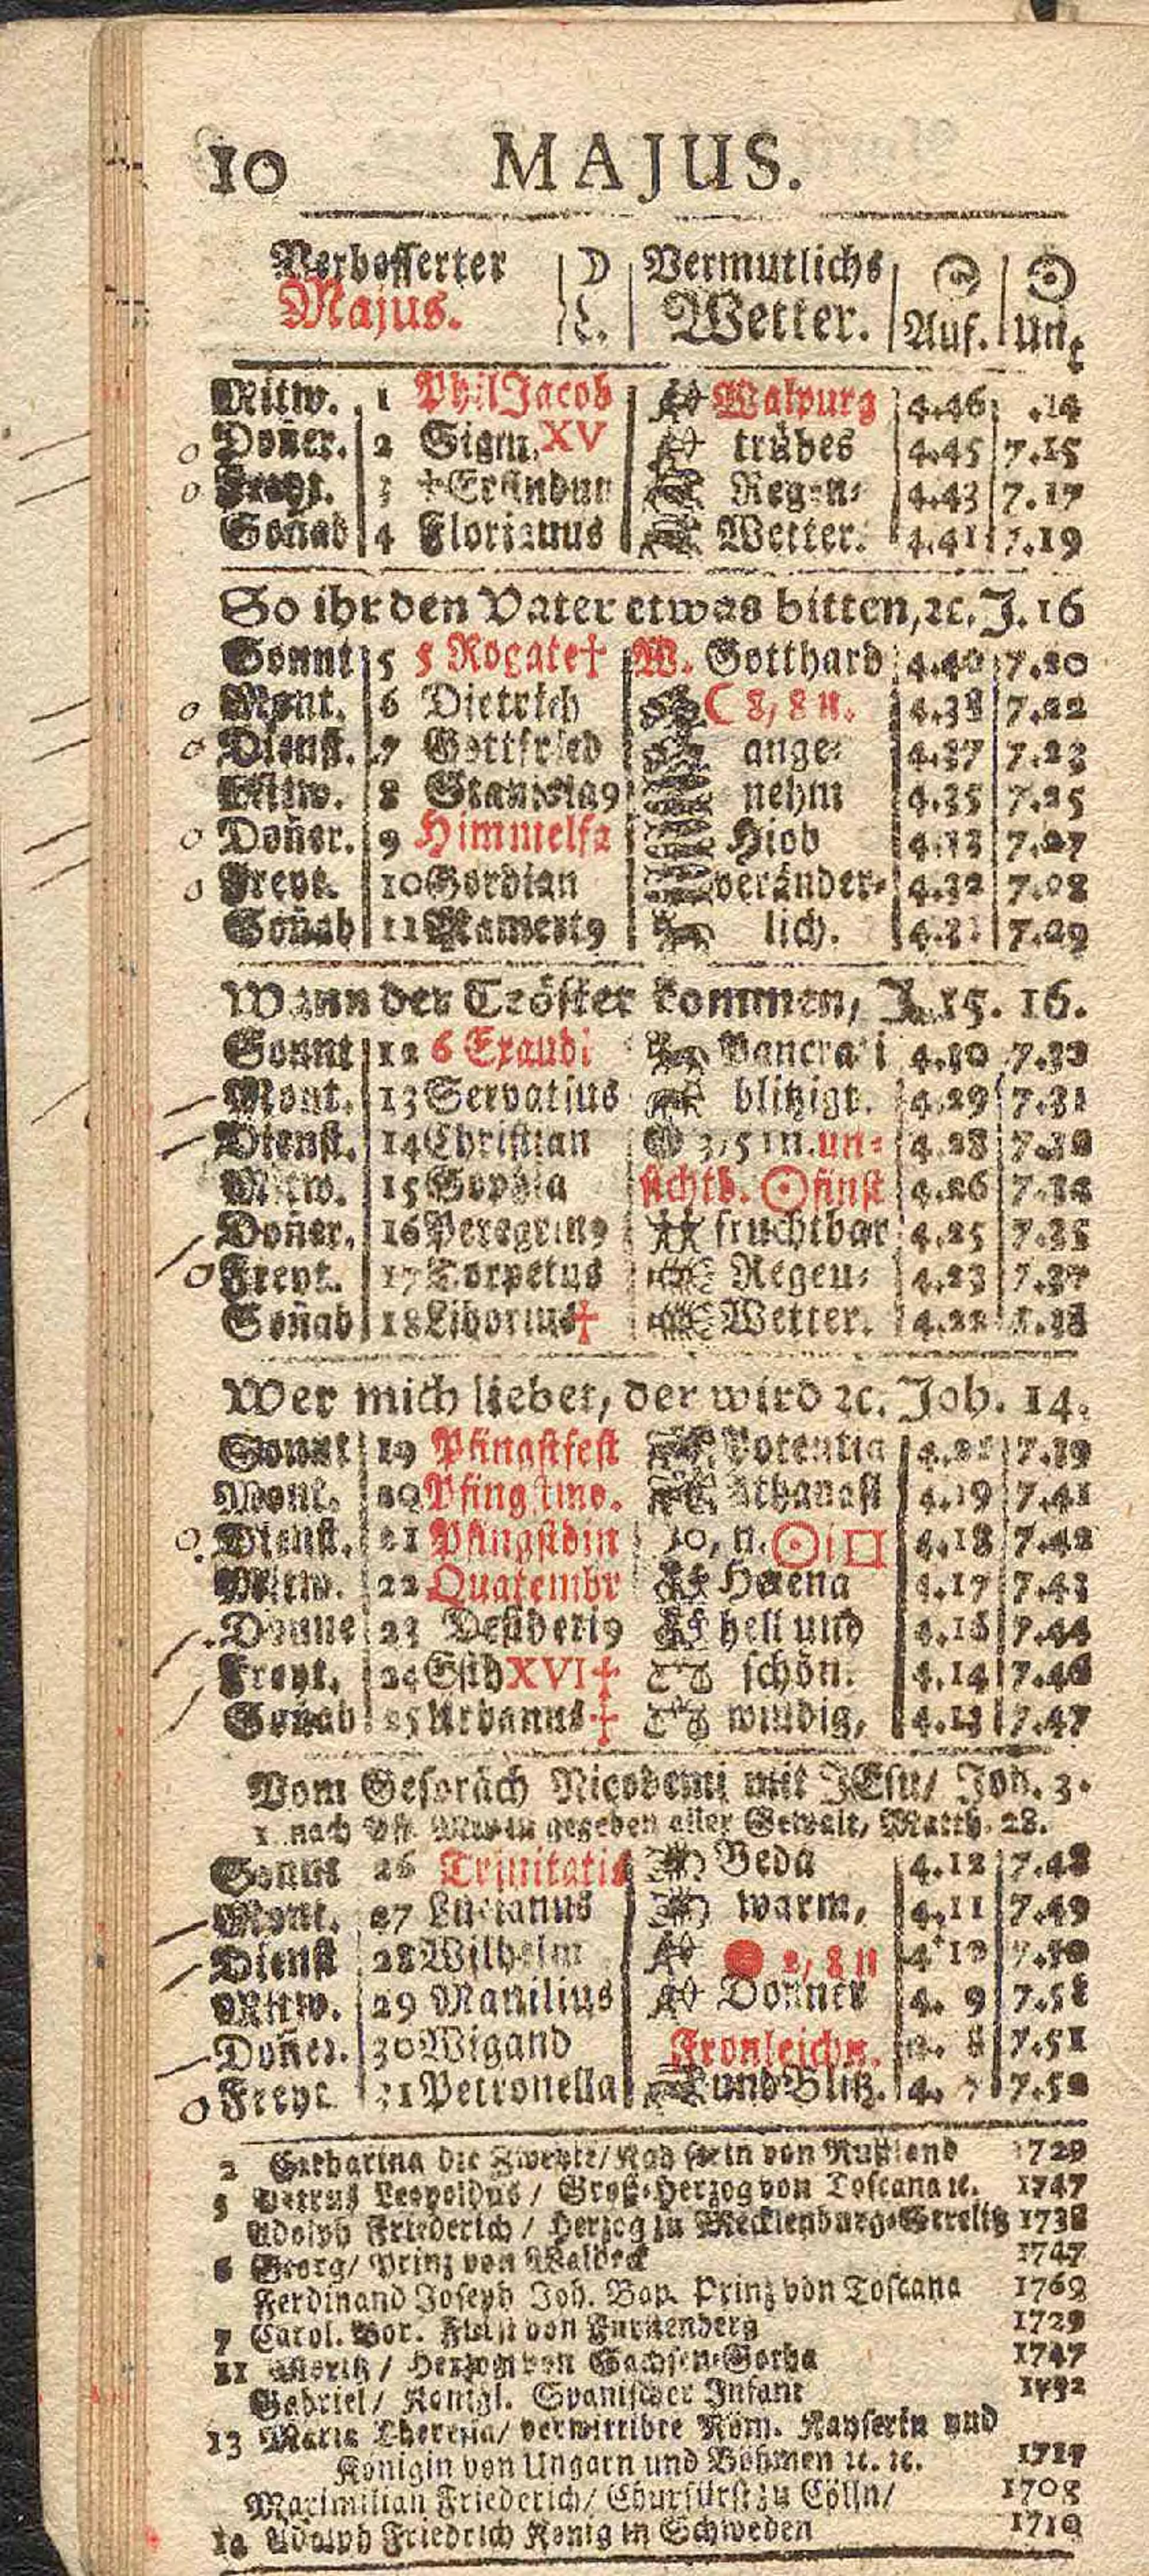 10 MAJUS.
Verbesserter | ☽ | Vermutlichs | ☉ | ☉
Majus. | L. | Wetter. | Auf. | Un.
Mitw. 1 Phil Jacob Walpurg 4.46 .14
Doñer. 2 Sigm. XV trübes 4.45 7.15
Freyt. 3 †Erfindun Regen- 4.43 7.17
Soñab 4 Florianus Wetter. 4.41 7.19
So ihr den Vater etwas bitten, ꝛc. J. 16
Sonnt 5 5 Rogate† W. Gotthard 4.40 7.20
Mont. 6 Dietrich ☾ 8, 8 n. 4.38 7.22
Dienst. 7 Gottfried ange- 4.37 7.23
Mitw. 8 Stanislaꝰ nehm 4.35 7.25
Doñer. 9 Himmelfa Hiob 4.33 7.27
Freyt. 10 Gordian veränder- 4.32 7.28
Soñab 11 Mamertꝰ lich. 4.31 7.29
Wann der Tröster kommen, J. 15. 16.
Sonnt 12 6 Exaudi Pancrati 4.30 7.30
Mont. 13 Servatius blitzigt. 4.29 7.31
Dienst. 14 Christian 3, 5 m. un- 4.28 7.32
Mitw. 15 Sophia sichtb. ☉finst 4.26 7.34
Doñer. 16 Peregrinꝰ fruchtbar 4.25 7.35
Freyt. 17 Torpetus Regen- 4.23 7.37
Soñab 18 Liborius† Wetter. 4.22 7.38
Wer mich liebet, der wird ꝛc. Joh. 14.
Sonnt 19 Pfingstfest Potentia 4.21 7.39
Mont. 20 Pfingstmo. Athanasi 4.19 7.41
Dienst. 21 Pfingstdin 10, n. ☉i□ 4.18 7.42
Mitw. 22 Quatembr Helena 4.17 7.43
Donne 23 Desideriꝰ hell und 4.16 7.44
Freyt. 24 Esth XVI† schön. 4.14 7.46
Soñab 25 Urbanus† windig, 4.13 7.47
Vom Gespräch Nicodemi mit JEsu/ Joh. 3.
1 nach Pf. Mir ist gegeben aller Gewalt, Matth. 28.
Sonnt 26 Trinitatis Beda 4.12 7.48
Mont. 27 Lucianus warm, 4.11 7.49
Dienst 28 Wilhelm ● 2, 8 n 4.10 7.50
Mitw. 29 Manilius Donner 4. 9 7.51
Doñer. 30 Wigand Fronleichn. 4. 8 7.51
Freyt 31 Petronella und Blitz. 4. 7 7.52
2 Catharina die Zweyte/ Kayserin von Rußland 1729
5 Petrus Leopoldus / Groß-Herzog von Toscana ꝛc. 1747
Adolph Friederich / Herzog zu Mecklenburg-Strelitz 1738
6 Georg/ Prinz von Waldeck 1747
Ferdinand Joseph Joh. Bap. Prinz von Toscana 1769
7 Carol. Bor. Fürst von Fürstenberg 1729
11 Moritz / Herzog von Sachsen-Gotha 1747
Gabriel/ Königl. Spanischer Infant 1752
13 Maria Theresia/ verwittibte Röm. Kayserin und
Königin von Ungarn und Böhmen ꝛc. ꝛc. 1717
Maximilian Friederich/ Churfürst zu Cölln/ 1708
14 Adolph Friedrich König in Schweden 1710